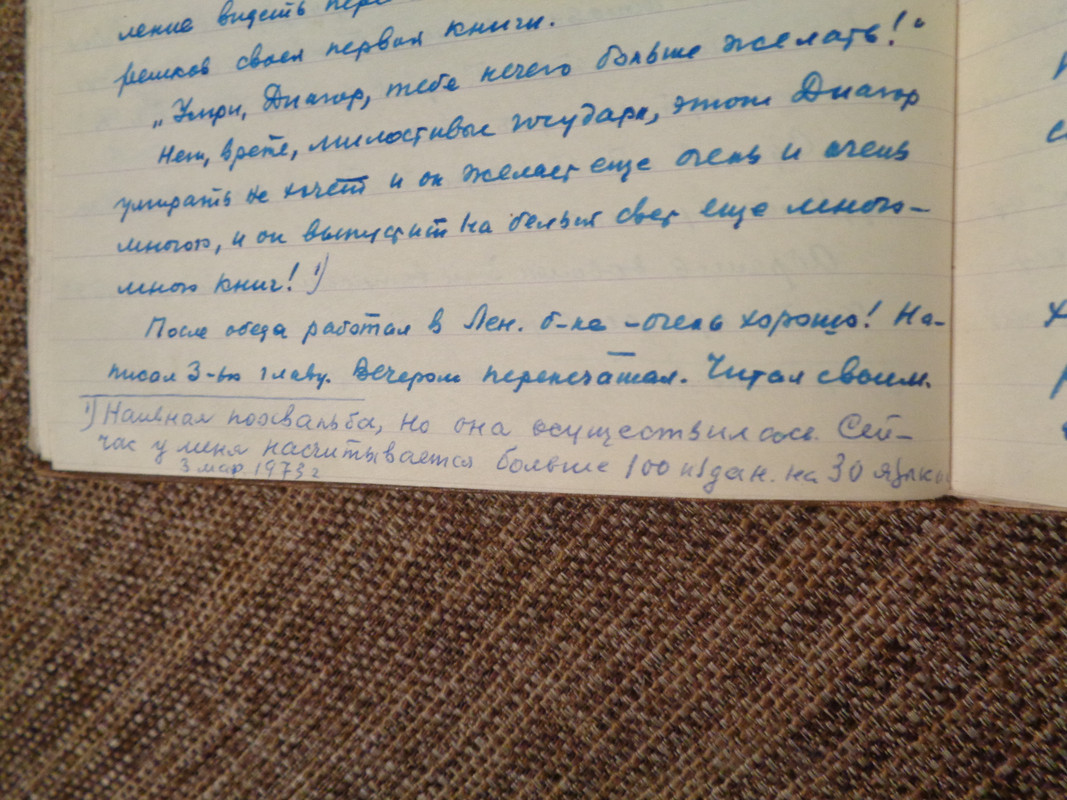 ление видеть пере
решков своей первой книги.
„Умри, Диагор, тебе нечего больше желать!“
Нет, врете, милостивые государи, этот Диагор
умирать не хочет и он желает еще очень и очень
многого, и он выпустит на белый свет еще много-
много книг! 1)
После обеда работал в Лен. б-ке – очень хорошо! На-
писал 3-ью главу. Вечером перепечатал. Читал своим.
1) Наивная похвальба, но она осуществилась. Сей-
час у меня насчитывается больше 100 издан. на 30 языка
3 мар. 1973 г